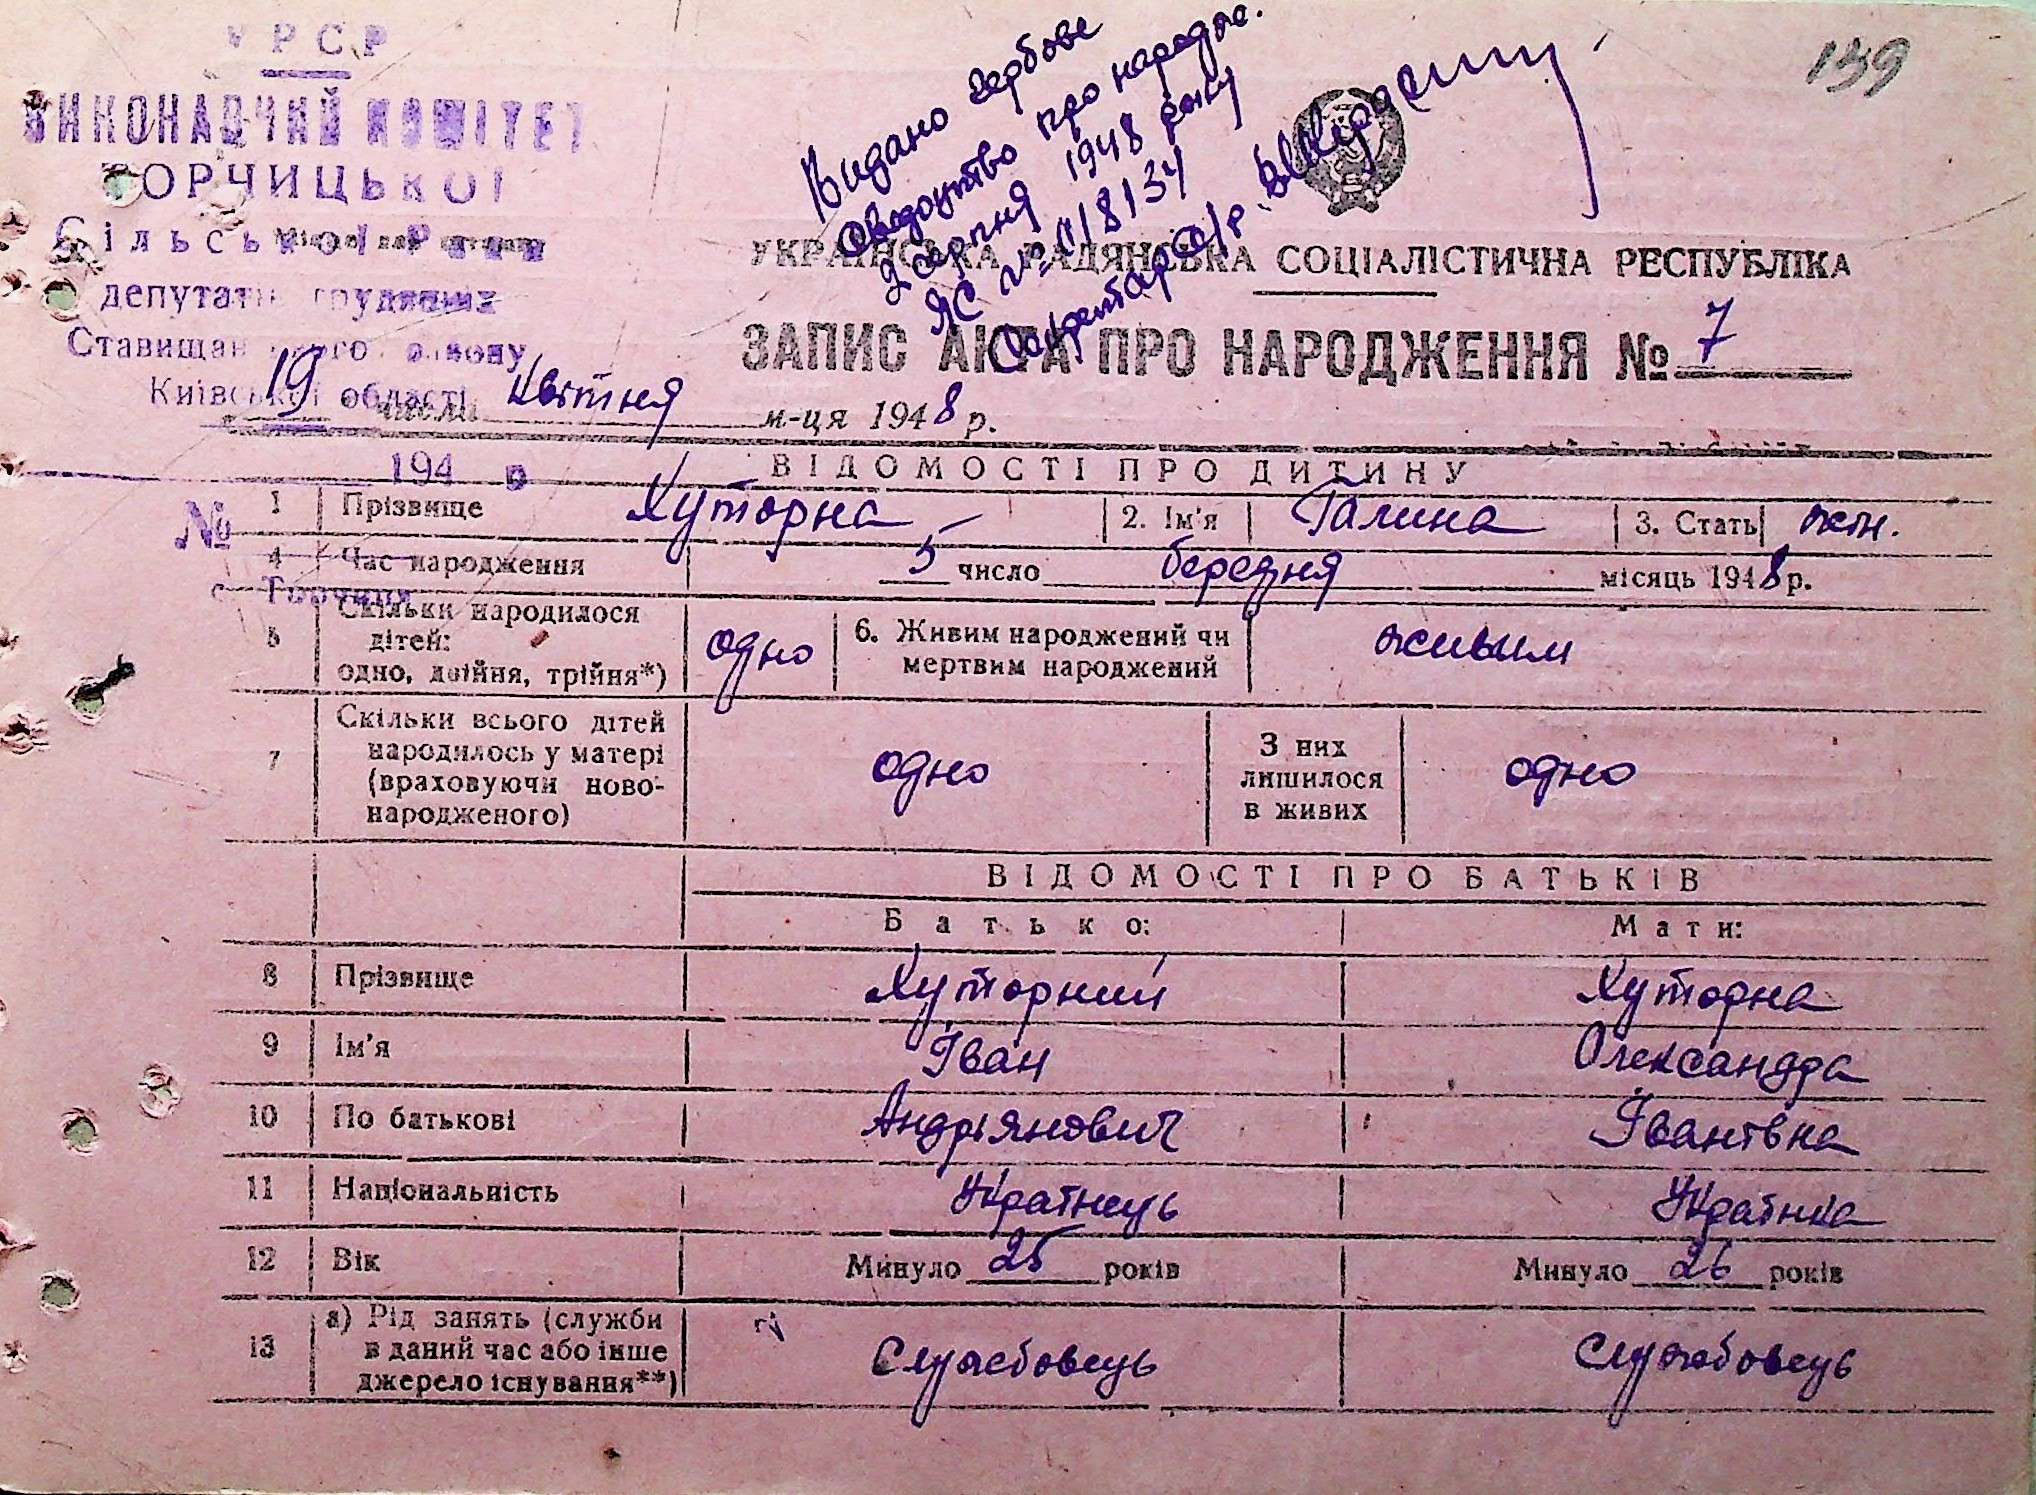 УРСР
ВИКОНАВЧИЙ КОМІТЕТ
ТОРЧИЦЬКОЇ
Сільської Ради
депутатів трудящих
Ставищанського району
Київської області
194 р
№
с. Торчиця
Видано гербове
свідоцтво про народже.
2 серпня 1948 року
ЯС № 018134
Секретар с/р.
139
УКРАЇНСЬКА РАДЯНСЬКА СОЦІАЛІСТИЧНА РЕСПУБЛІКА
ЗАПИС АКТА ПРО НАРОДЖЕННЯ № 7
19 числа квітня м-ця 1948 р.
ВІДОМОСТІ ПРО ДИТИНУ
1 Прізвище Хуторна 2. Ім'я Галина 3. Стать жін.
4 Час народження 5 число березня місяць 1948 р.
5 Скільки народилося дітей: одно, двійня, трійня*) одно 6. Живим народжений чи мертвим народжений живим
7 Скільки всього дітей народилось у матері (враховуючи ново-народженого) одно З них лишилося в живих одно
ВІДОМОСТІ ПРО БАТЬКІВ
Батько: Мати:
8 Прізвище Хуторний Хуторна
9 Ім'я Іван Олександра
10 По батькові Андріянович Іванівна
11 Національність Українець Українка
12 Вік Минуло 25 років Минуло 26 років
13 а) Рід занять (служби в даний час або інше джерело існування**) Службовець Службовець